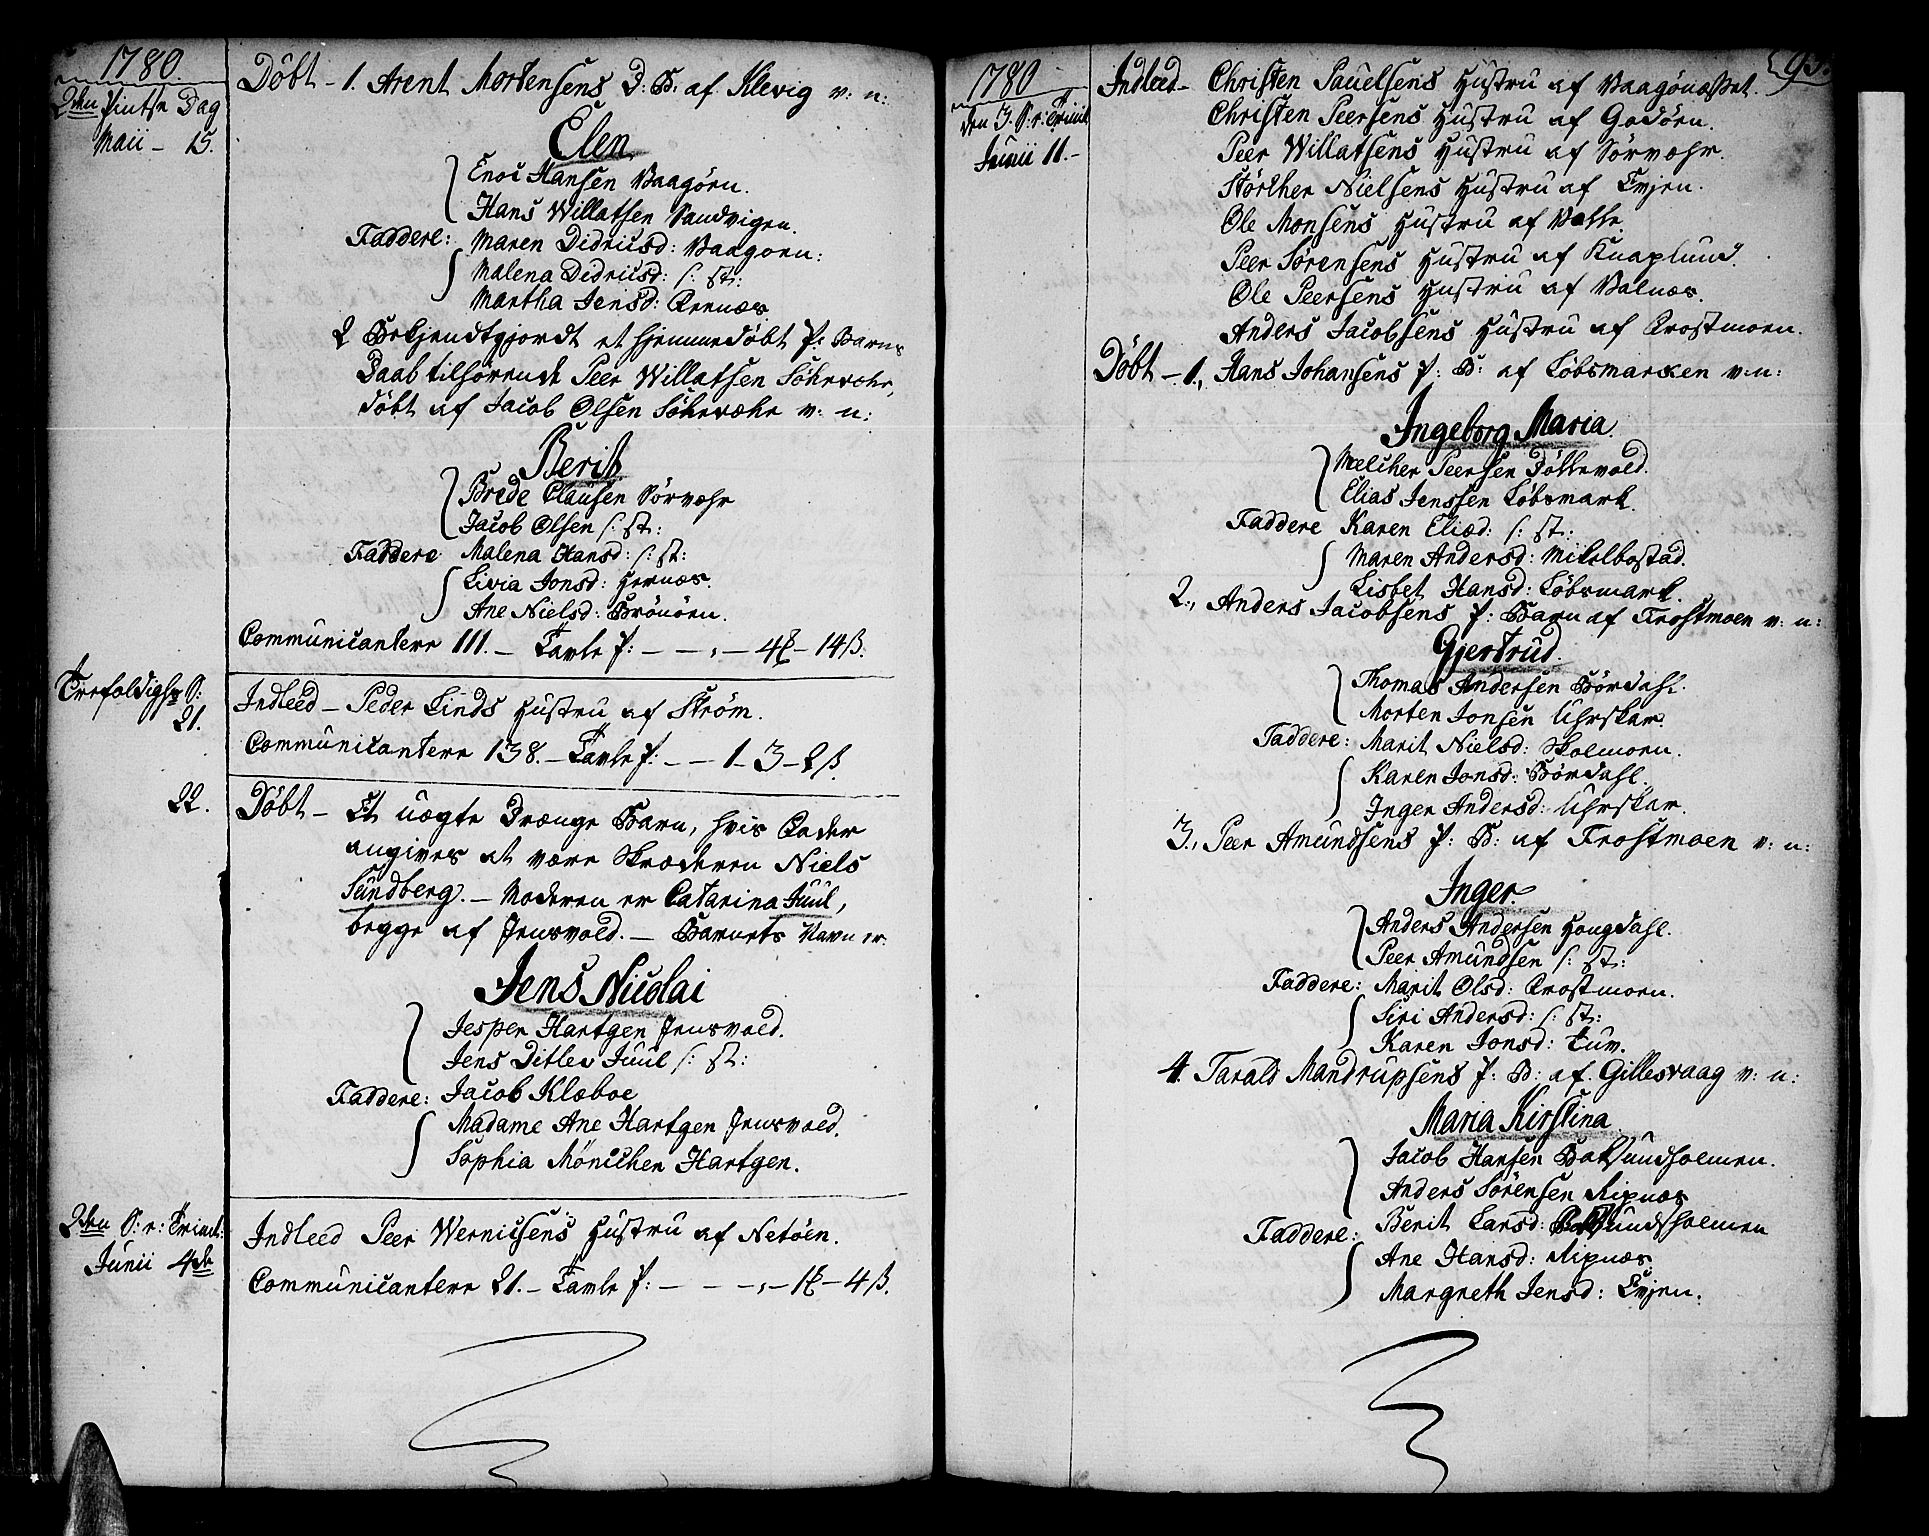 1780.
2den Pintse Dag
Maii - 15.
Döbt - 1. Arent Mortensens D: B: af Klevig v: n:
Elen
Enoc Hansen Vaagöen.
Hans Willatsen Sandvigen.
Faddere: Maren Didricsd: Vaagoen:
Malena Didricsd: /: st:
Martha Jensd:
2 Bekjendtgjordt et hjemmedöbt P: Barns
Daab tilhörende Peer Willatsen
döbt af Jacob Olsen v: n:
Berit
Brede Clausen Sörvær
Jacob Olsen /: st:
Faddere Malena Hansd: /: st:
Livia Jonsd: Hernæs.
Ane Nielsd: Brönöen.
Communicantere 111. - Tavle P: - - , - 4 - 14 ß.
Trefoldighs S:
21.
Indleed - Peder Linds Hustru af Ström.
Communicantere 138. - Tavle P: - - 1 - 3 - 2 ß.
22.
Döbt - Et uægte Drænge Barn, hvis Fader
angives at være Skræderen Niels
Sundberg. - Moderen er Catarina Juul,
begge af Jensvold. - Barnets Navn er
Jens Nicolai
Jesper Hartgen Jensvold.
Jens Ditlev Juul /: st:
Faddere: Jacob Klæboe
Madame Ane Hartgen Jensvold.
Sophia Mönichen Hartgen.
2den S: p: Trinit:
Junii 4de
Indleed Peer Wernicsens Hustru af Netöen.
Communicantere 21. - Tavle P: - - - , - 1 - 4 ß.
93.
1780
den 3. S: p: Trinit
Junii 11. -
Indleed - Christen Pauelsens Hustru af Vaagönæsset.
Christen Peersens Hustru af Godöen.
Peer Willatsens Hustru af Sörvær.
Störcher Nielsens Hustru af Evjen.
Ole Monsens Hustru af Valle.
Peer Sörensens Hustru af Knaplund.
Ole Peersens Hustru af Valnæs.
Anders Jacobsens Hustru af Frostmoen.
Döbt - 1., Hans Johansens P: B: af Löbsmarken v: n:
Ingeborg Maria
Melcher Peersen
Elias Jenssen Löbsmark.
Faddere Karen Eliæd: /: st:
Maren Andersd: Mikelbostad.
Lisbet Hansd: Löbsmark.
2., Anders Jacobsens P: Barn af Frostmoen v: n:
Gjertrud
Thomas Andersen Bördahl.
Morten Jonsen Uhrskar.
Faddere: Marit Nielsd: Skolmoen.
Karen Jonsd: Bördahl.
Inger Andersd: Uhrskar.
3., Peer Amundsens P: B: af Frostmoen v: n:
Inger
Anders Andersen Hougdahl.
Peer Amundsen /: st:
Faddere: Marit Olsd: Frostmoen.
Siri Andersd: /: st:
Karen Jonsd: Tuv.
4. Tarald Mandrupsens P: B: af Gillesvaag v: n:
Maria Kirstina
Jacob Hansen Badsundholmen.
Anders Sörensen Ripnæs
Faddere: Berit Larsd:
Ane Hansd: Ripnæs
Margreth Jensd: Evjen.